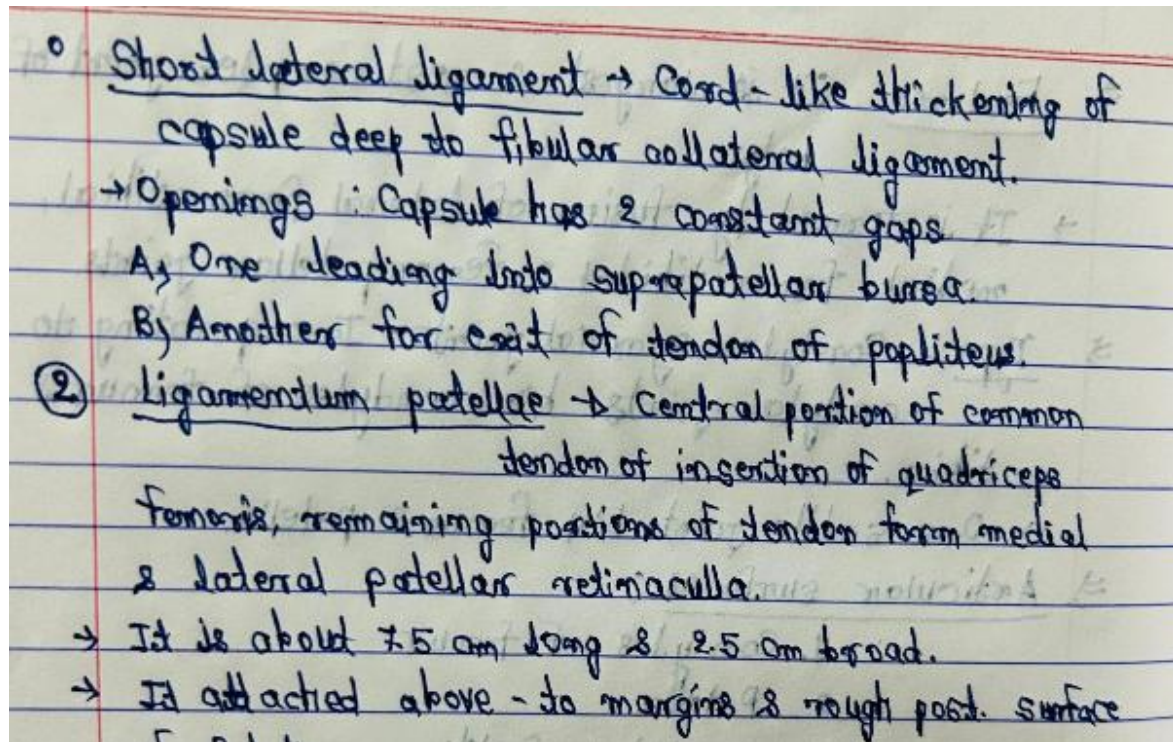 ° Short lateral ligament → Cord-like thickening of
capsule deep to fibular collateral ligament.
→ Openings : Capsule has 2 constant gaps
A, One leading into suprapatellar bursa.
B, Another for exit of tendon of popliteus.
② Ligamentum patellae → Central portion of common
tendon of insertion of quadriceps
femoris, remaining portions of tendon form medial
& lateral patellar retinaculla.
→ It is about 7.5 cm long & 2.5 cm broad.
→ It attached above - to margins & rough post. surface